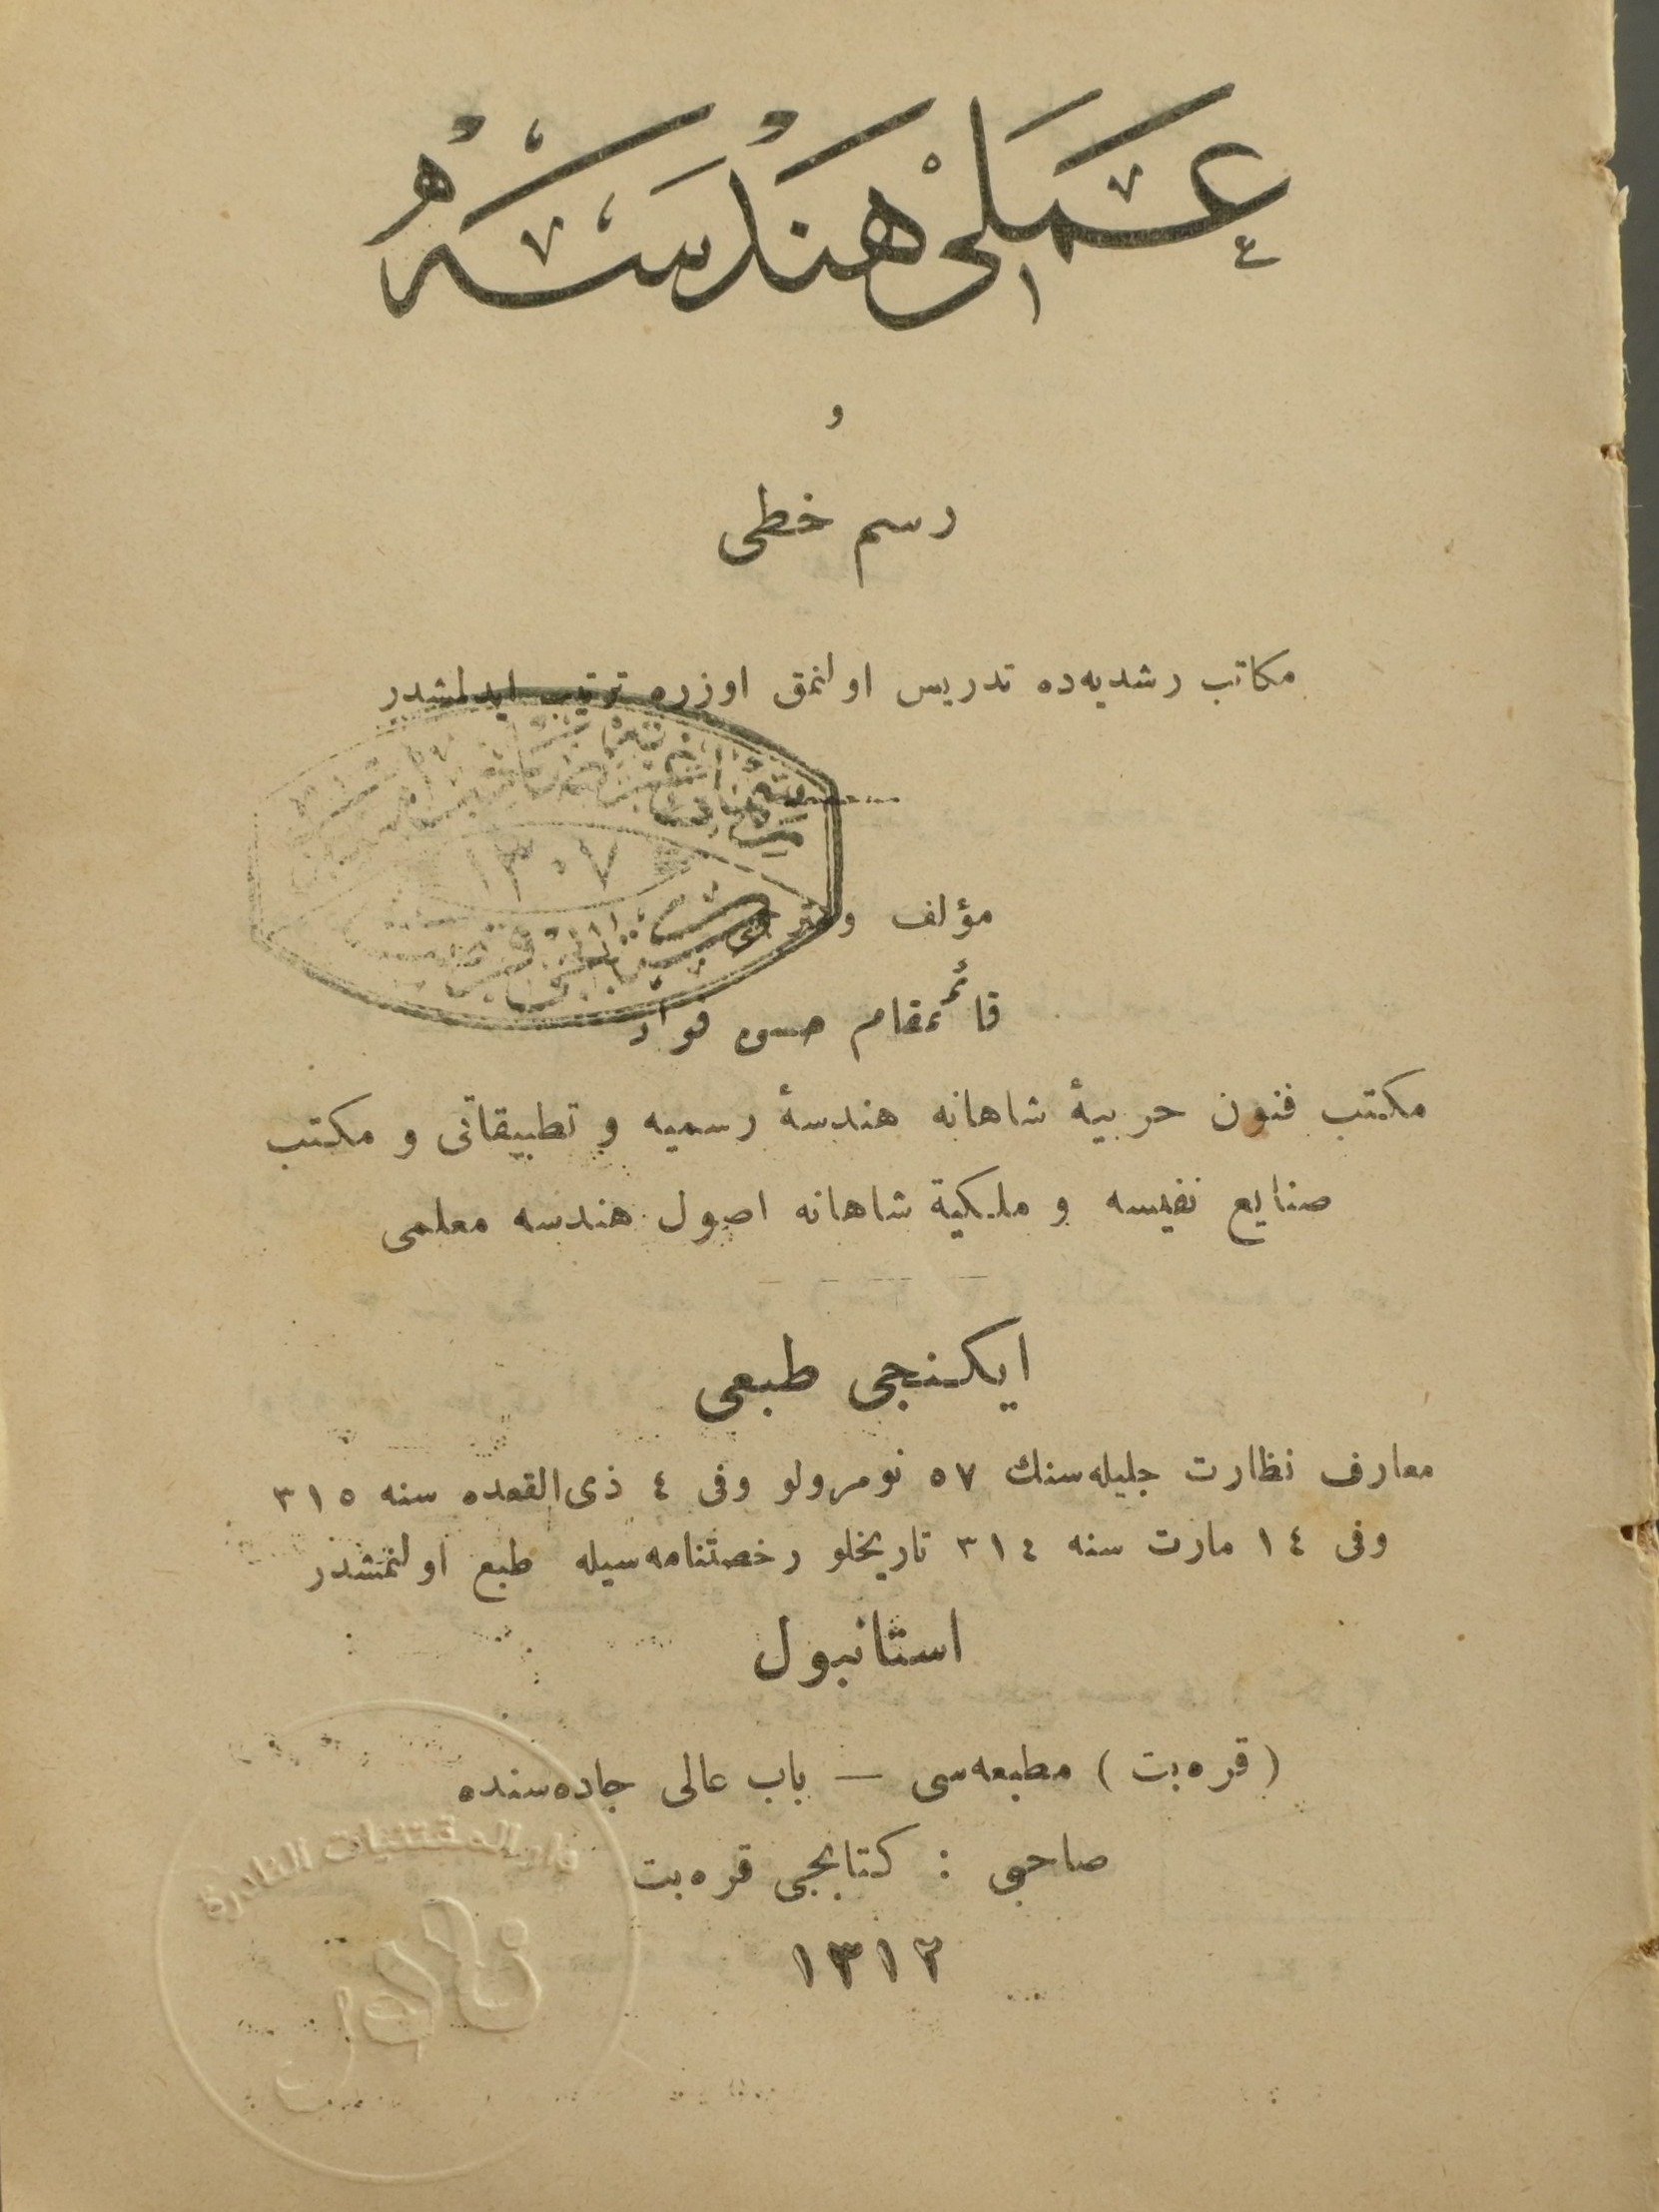 عملی هندسه
و
رسم خطی
مكاتب رشدیه‌ده تدریس اولنمق اوزره ترتیب ایدلمشدر
مؤلف
قائممقام حسن فواد
مكتب فنون حربیۀ شاهانه هندسۀ رسمیه و تطبیقاتی و مكتب
صنایع نفیسه و ملكیۀ شاهانه اصول هندسه معلمی
ایكنجی طبعی
معارف نظارت جلیله‌سنك ٥٧ نومرولو وفی ٤ ذی‌القعده سنه ٣١٥
وفی ١٤ مارت سنه ٣١٤ تاریخلو رخصتنامه‌سیله طبع اولنمشدر
استانبول
( قره‌بت ) مطبعه‌سی — باب عالی جاده‌سنده
صاحبی : كتابجی قره‌بت
١٣١٢
١٣٠٧
دار المقتنيات النادرة
نادر